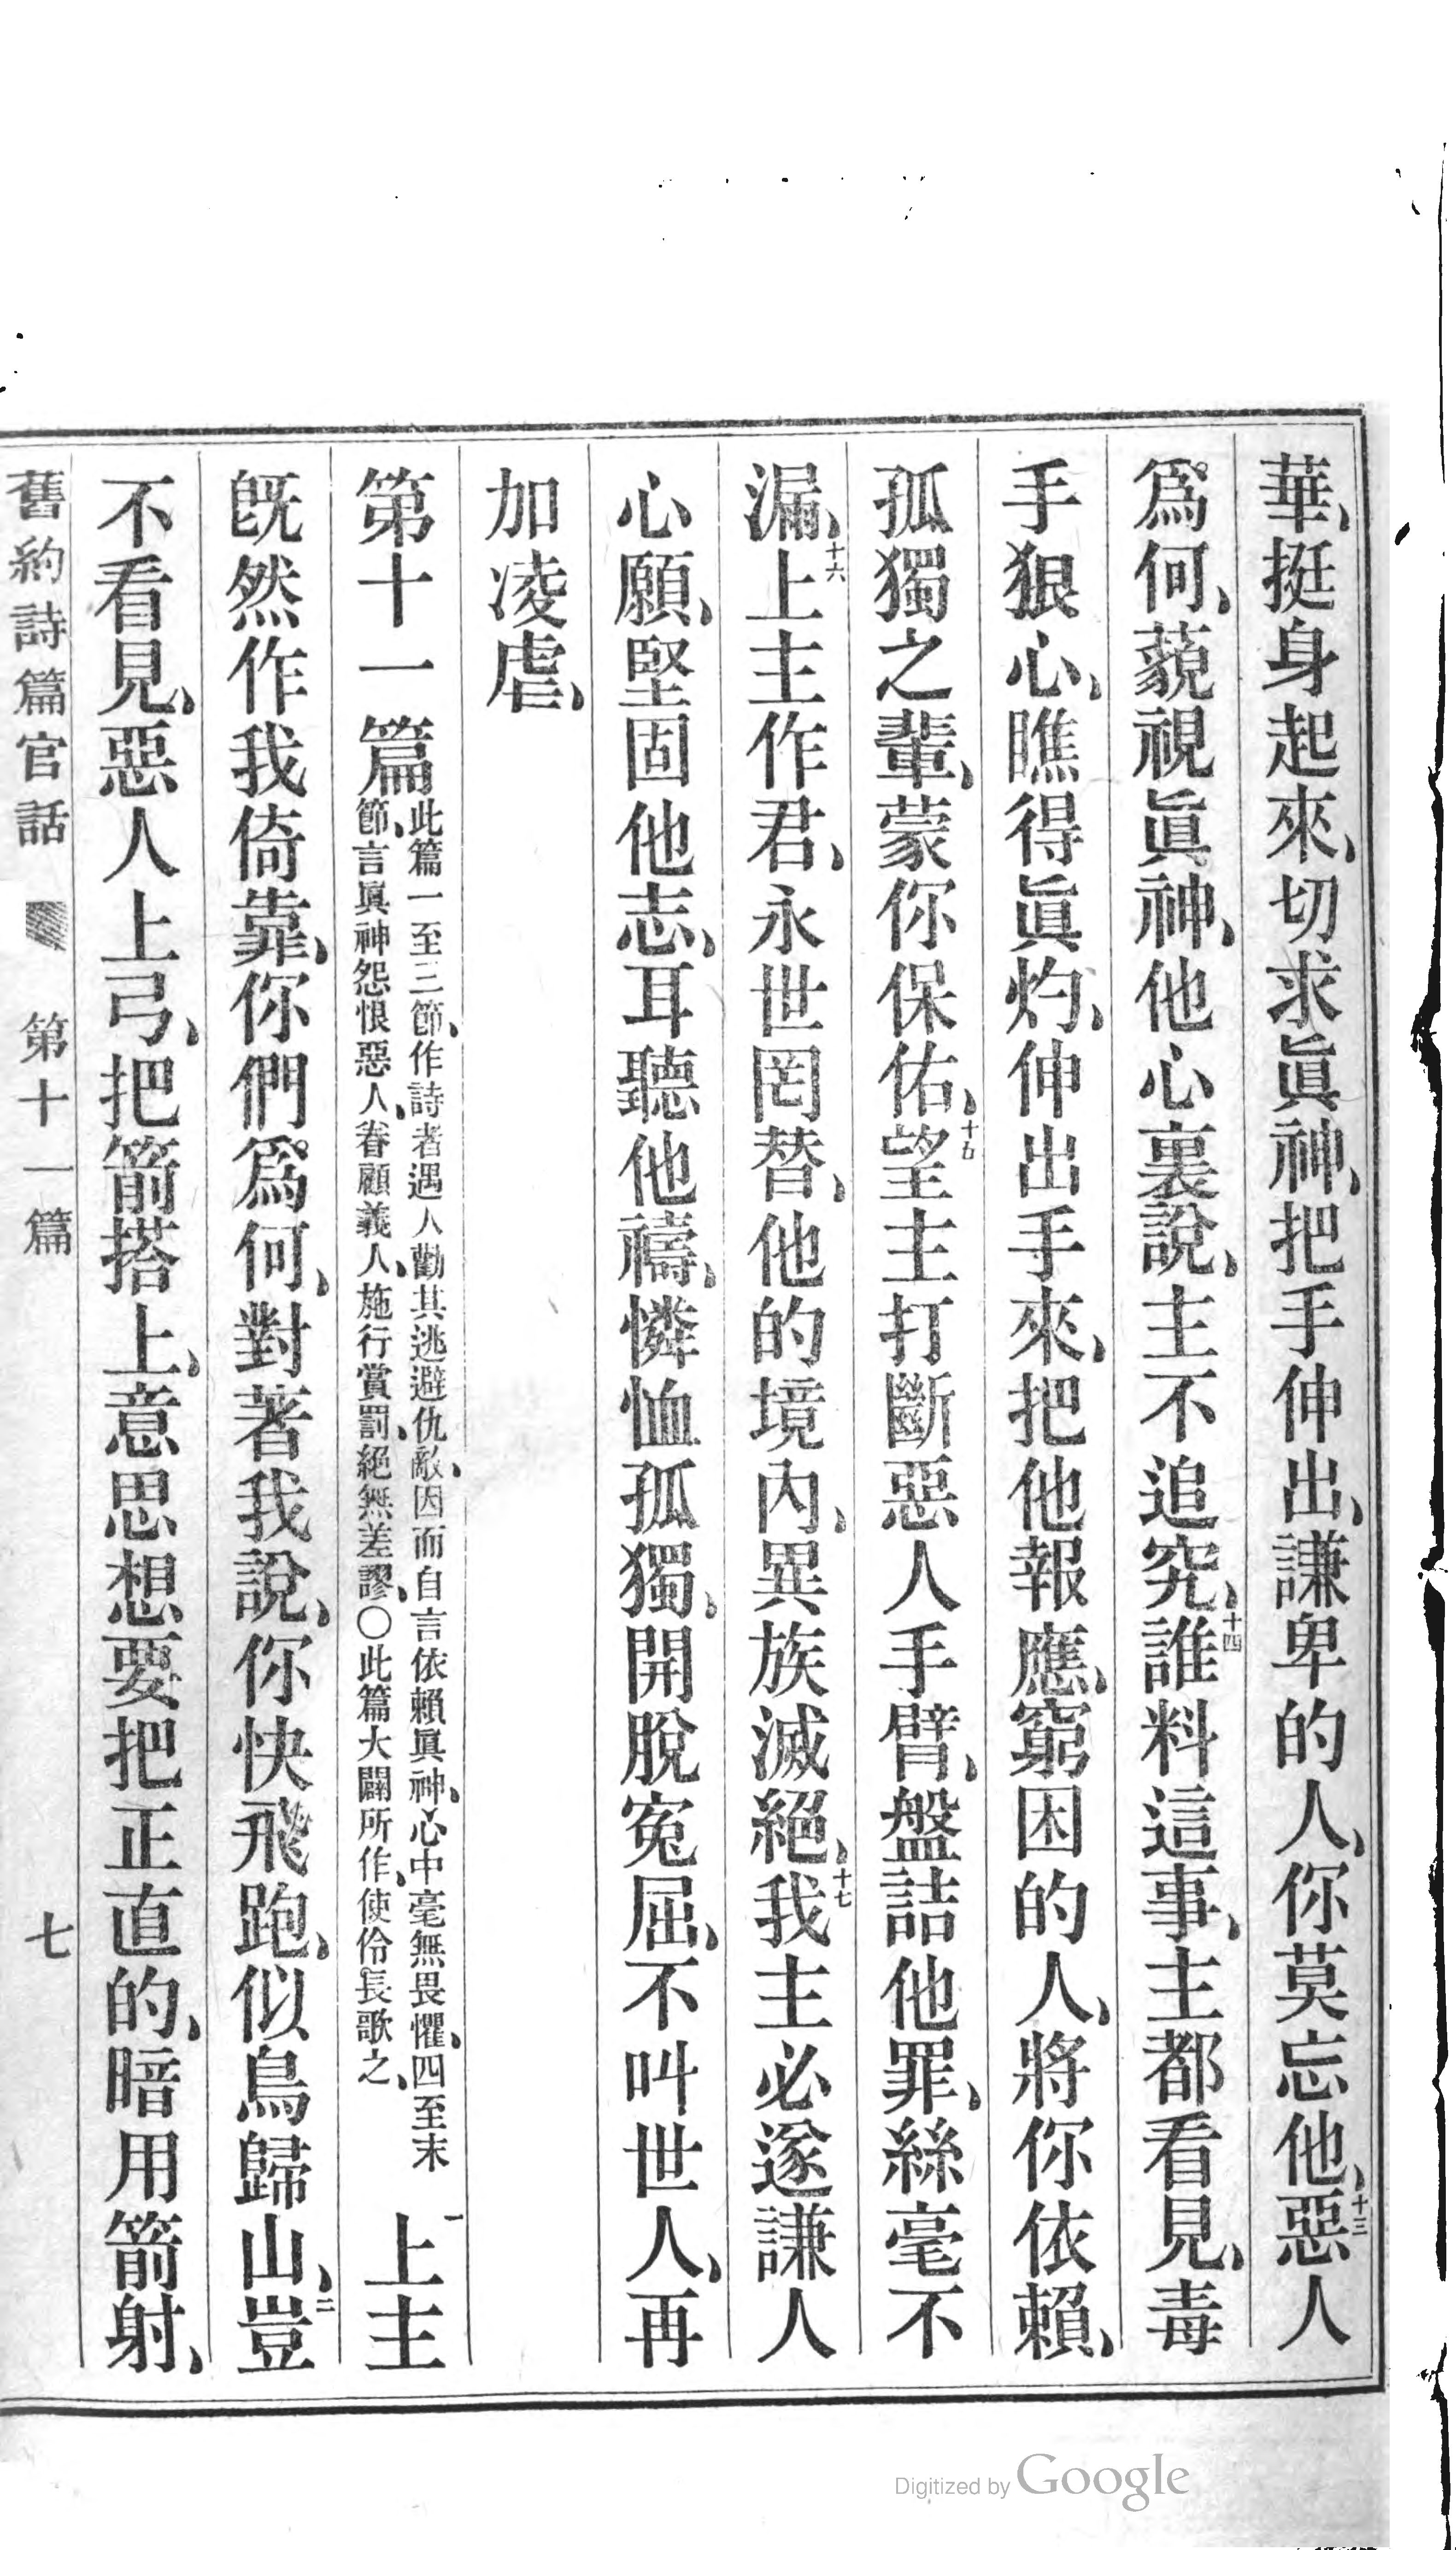 華、挺身起來、切求眞神、把手伸出、謙卑的人、你莫忘他、十三惡人
爲何、藐視眞神、他心裏說、主不追究、十四誰料這事、主都看見、毒
手狠心、瞧得眞灼、伸出手來、把他報應、窮困的人、將你依賴、
孤獨之輩、蒙你保佑、十五望主打斷惡人手臂、盤詰他罪、絲毫不
漏、十六上主作君、永世罔替、他的境內、異族滅絕、十七我主必遂謙人
心願、堅固他志、耳聽他禱、憐恤孤獨、開脫寃屈、不叫世人、再
加凌虐、
第十一篇 此篇一至三節、作詩者遇人勸其逃避仇敵、因而自言依賴眞神、心中毫無畏懼、四至末
節、言眞神怨恨惡人、眷顧義人、施行賞罰、絕無差謬、〇此篇大闢所作、使伶長歌之、
一上主
旣然作我倚靠、你們爲何、對著我說、你快飛跑、似鳥歸山、二豈
不看見、惡人上弓、把箭搭上、意思想要把正直的、暗用箭射、
舊約詩篇官話 第十一篇 七
Digitized by Google